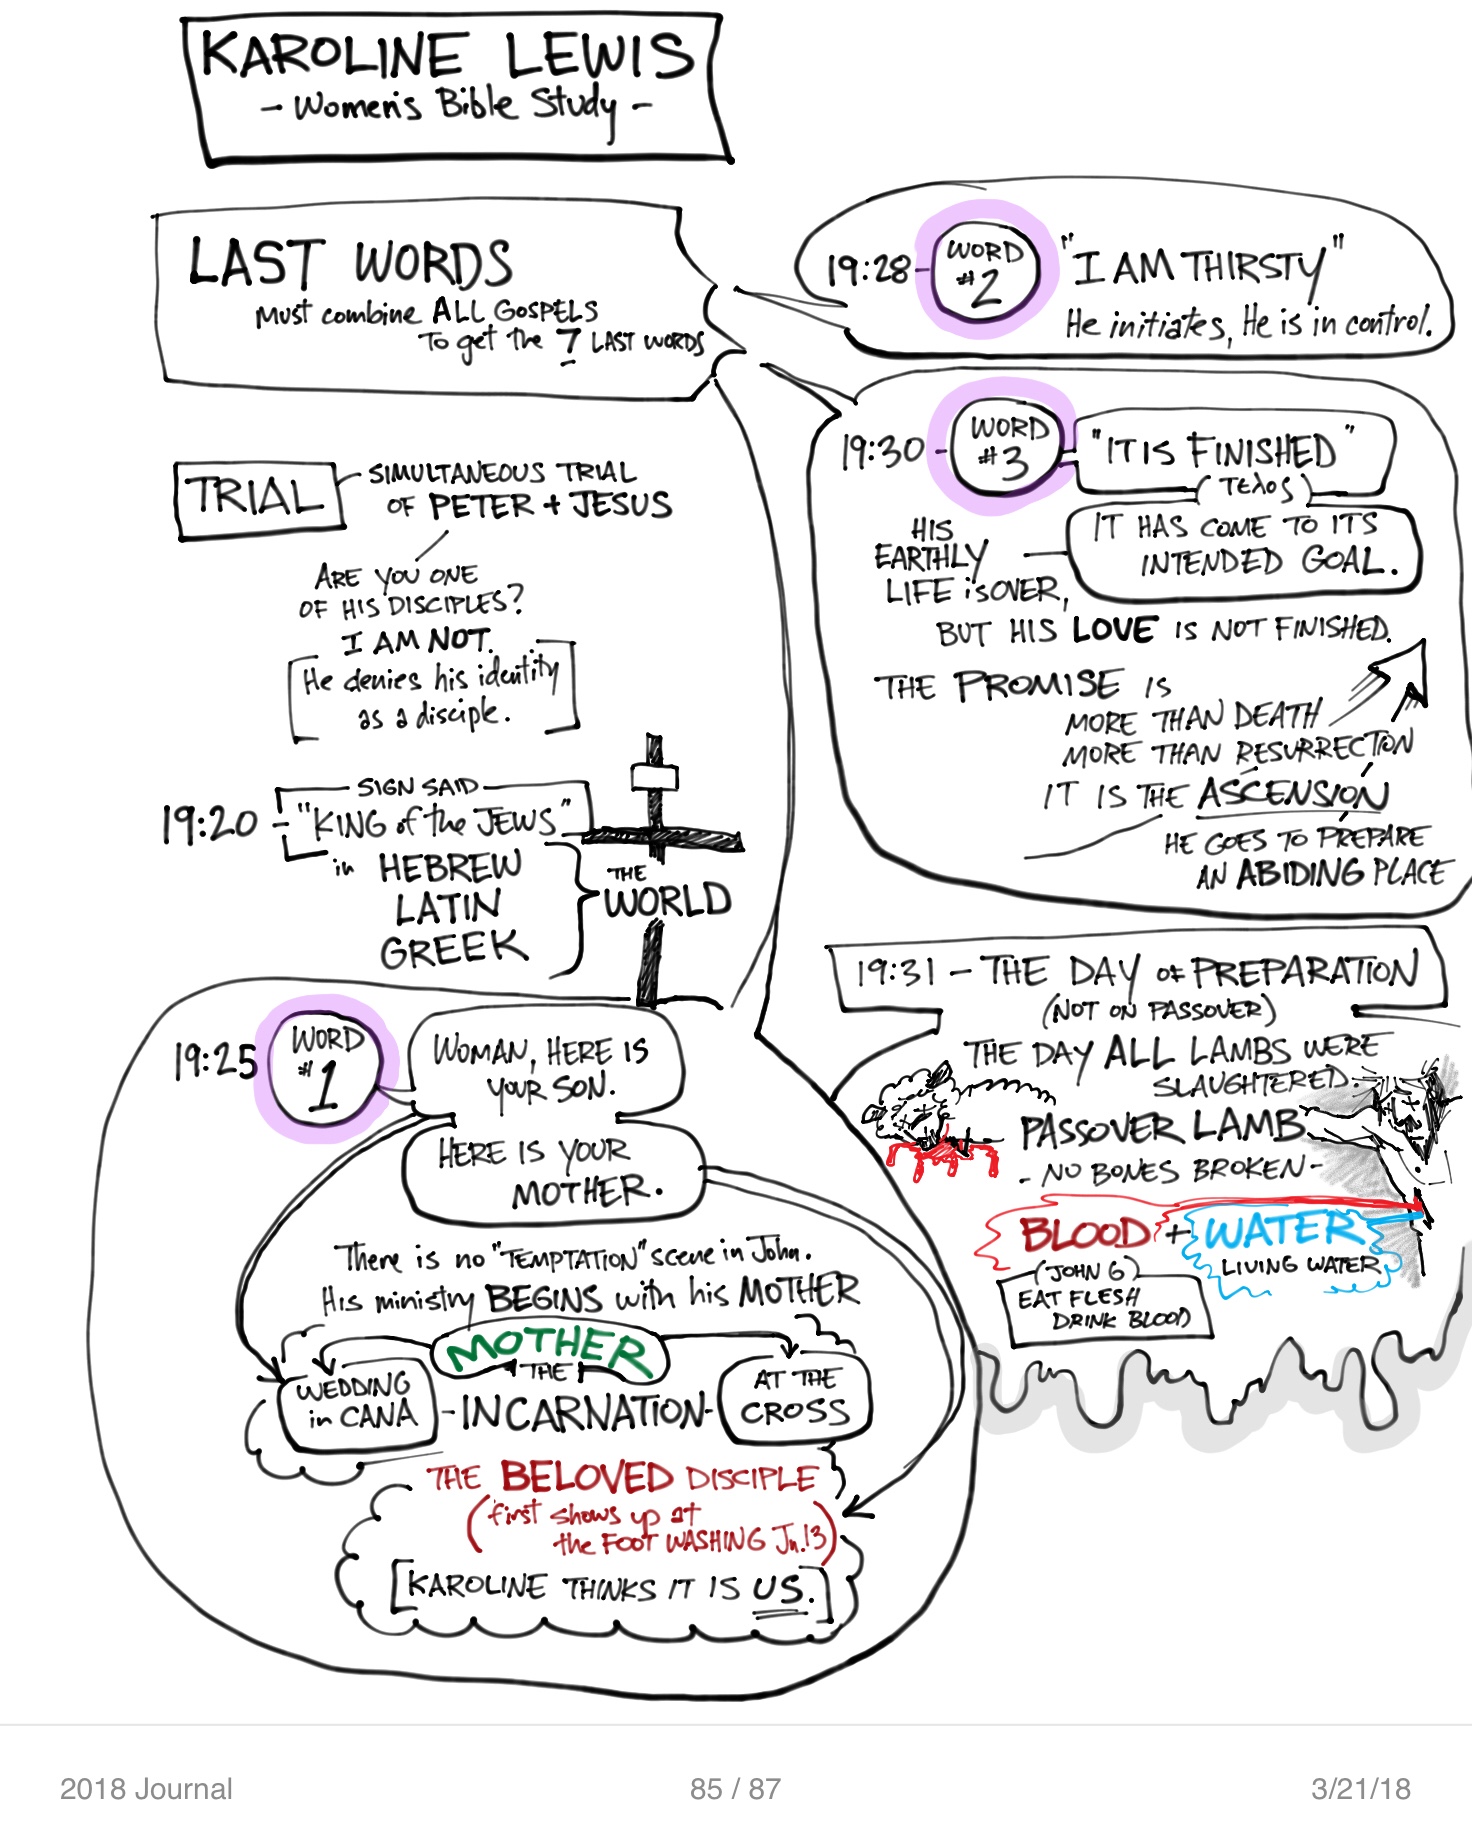 KAROLINE LEWIS
- Women's Bible Study -
LAST WORDS
Must combine ALL GOSPELS
To get the 7 LAST WORDS
19:28 - WORD #2 "I AM THIRSTY"
He initiates, He is in control.
19:30 - WORD #3 "IT IS FINISHED"
(Τελος)
IT HAS COME TO ITS
INTENDED GOAL.
HIS
EARTHLY
LIFE is OVER,
BUT HIS LOVE IS NOT FINISHED.
THE PROMISE IS
MORE THAN DEATH
MORE THAN RESURRECTION
IT IS THE ASCENSION
HE GOES TO PREPARE
AN ABIDING PLACE
TRIAL
SIMULTANEOUS TRIAL
OF PETER + JESUS
ARE YOU ONE
OF HIS DISCIPLES?
I AM NOT.
[He denies his identity
as a disciple.]
SIGN SAID
19:20 - "KING of the JEWS"
in HEBREW
LATIN
GREEK
THE
WORLD
19:25 WORD #1
WOMAN, HERE IS
YOUR SON.
HERE IS YOUR
MOTHER.
There is no "TEMPTATION" scene in John.
His ministry BEGINS with his MOTHER
MOTHER
THE
WEDDING
in CANA
- INCARNATION -
AT THE
CROSS
THE BELOVED DISCIPLE
(first shows up at
the FOOT WASHING Jn. 13)
[KAROLINE THINKS IT IS US.]
19:31 - THE DAY OF PREPARATION
(NOT ON PASSOVER)
THE DAY ALL LAMBS WERE
SLAUGHTERED.
PASSOVER LAMB
- NO BONES BROKEN -
BLOOD + WATER
LIVING WATER
(JOHN 6)
EAT FLESH
DRINK BLOOD
2018 Journal
85 / 87
3/21/18